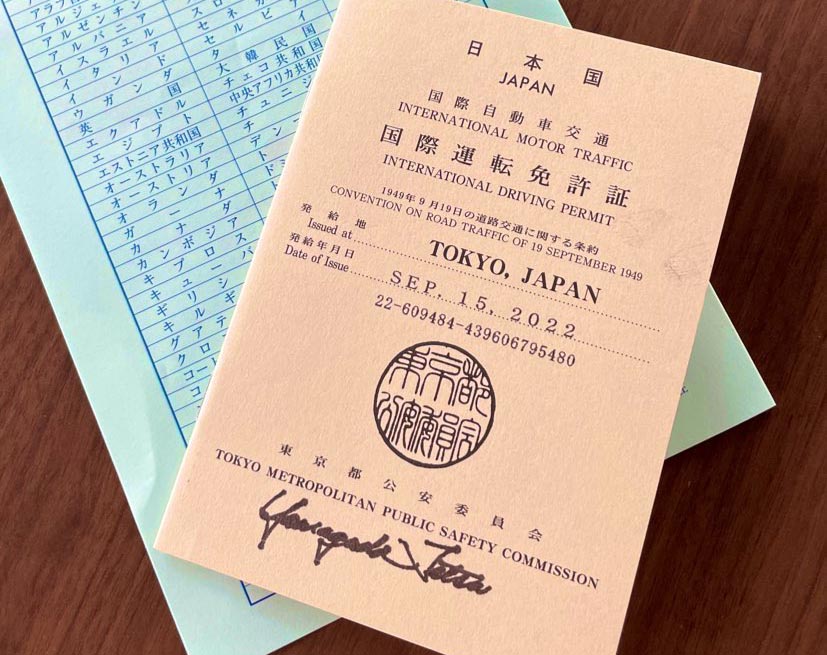 日本国
JAPAN
国際自動車交通
INTERNATIONAL MOTOR TRAFFIC
国際運転免許証
INTERNATIONAL DRIVING PERMIT
1949年9月19日の道路交通に関する条約
CONVENTION ON ROAD TRAFFIC OF 19 SEPTEMBER 1949
発給地
Issued at TOKYO, JAPAN
発給年月日
Date of Issue SEP. 15, 2022
22-609484-439606795480
東京都
公安委員会
東京都公安委員会
TOKYO METROPOLITAN PUBLIC SAFETY COMMISSION
Yamagada Tetta
アルゼンチン
アルバニア
イスラエル
イタリア
インド
ウガンダ
英国
エクアドル
エジプト
エストニア共和国
オーストラリア
オーストリア
オランダ
ガーナ
カナダ
カンボジア
キプロス
キューバ
ギリシ
キルギ
グアテ
クロ
コート
コ
スロ
セネガ
セルビ
タイ
大韓民国
チェコ共和国
中央アフリカ共和国
チュニジ
チ
デン
ト